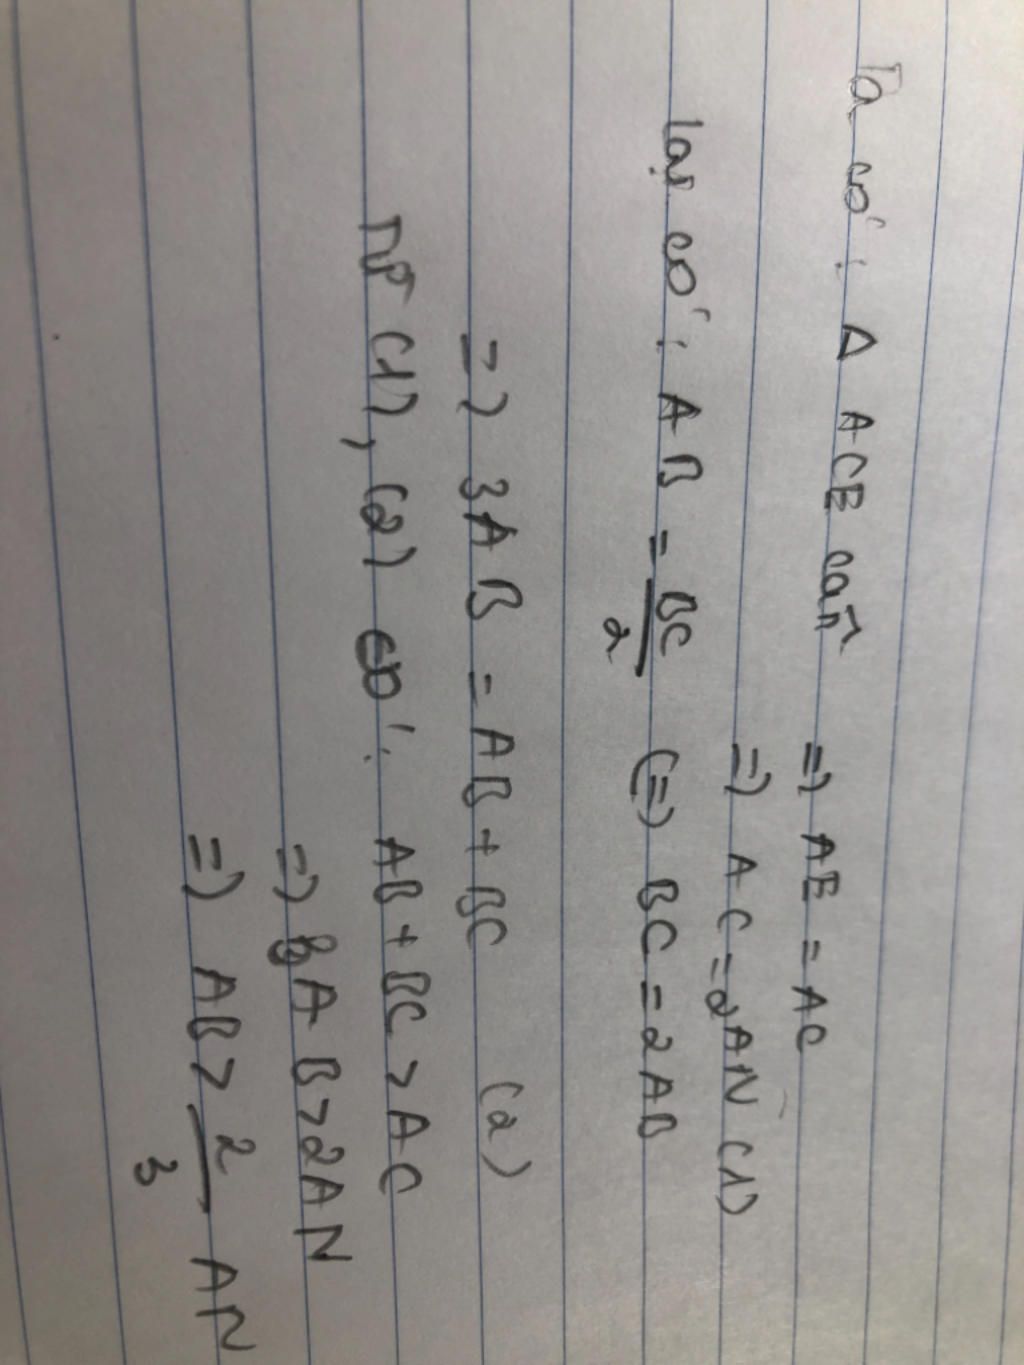 Ta có: Δ ACE cân => AE = AC
=> AC = 2AN (1)
lại có: AB = BC/2 (=) BC = 2AB
=) 3AB = AB + BC (2)
Từ (1), (2) có: AB + BC > AC
=) 3AB > 2AN
=) AB > 2/3 AN